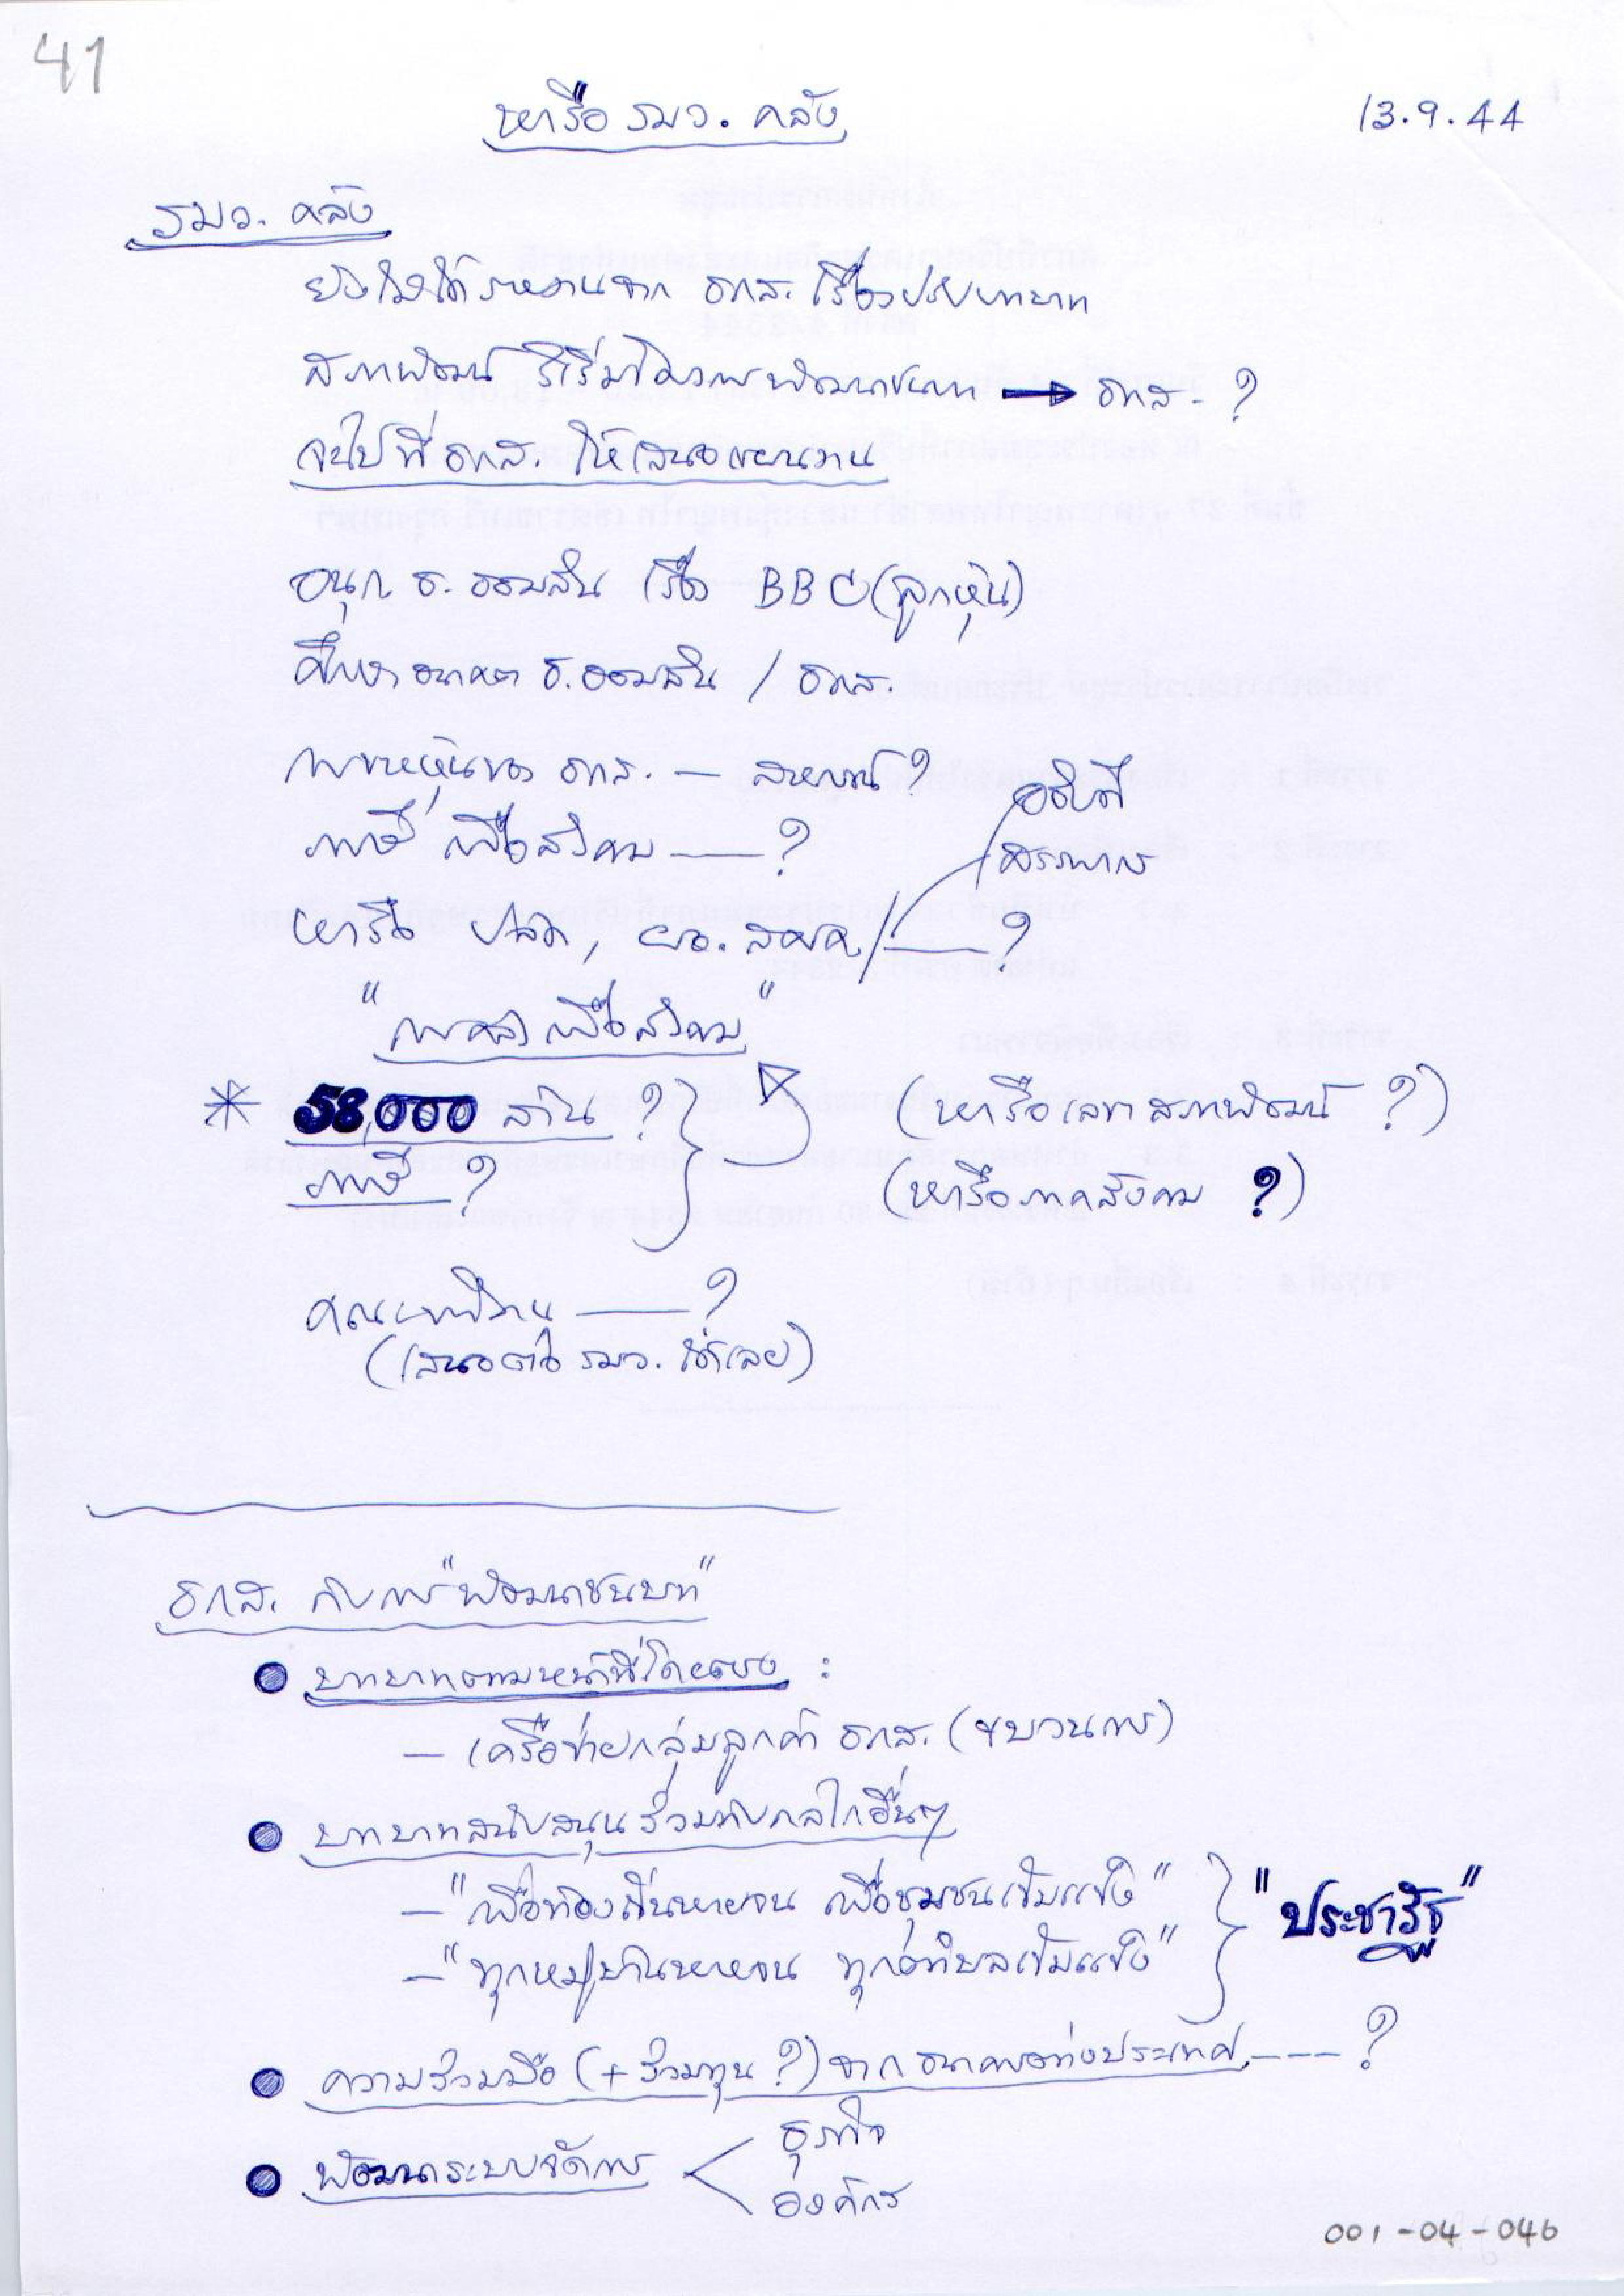 41
หารือ รมว. คลัง
13.9.44
รมว. คลัง
ยังไม่ได้รายงานจาก ธกส. เรื่องปรับบทบาท
สภาพัฒน์ ริเริ่มโครงการพัฒนาชนบท → ธกส. ?
จะไปที่ ธกส. ให้เสนอแผนงาน
อนุก. ธ. ออมสิน เรื่อง BBC (ลูกหุ้น)
ศึกษาอนาคต ธ. ออมสิน / ธกส.
การขายหุ้นของ ธกส. — สหกรณ์ ?
ภาษี เพื่อสังคม —— ?
อธิบดี
สรรพากร
หารือ ปลัด, ผอ. สศค. / —— ?
"การคลังเพื่อสังคม"
* 58,000 ล้าน ?
(หารือเลขาสภาพัฒน์ ?)
ภาษี ?
(หารือภาคสังคม ?)
คณะทำงาน —— ?
(เสนอต่อ รมว. ได้เลย)
ธกส. กับการ "พัฒนาชนบท"
● บทบาทตามหน้าที่โดยตรง :
— เครือข่ายกลุ่มลูกค้า ธกส. (ขบวนการ)
● บทบาทสนับสนุนร่วมกับกลไกอื่นๆ
— "เพื่อท้องถิ่นหายจน เพื่อชุมชนเข้มแข็ง"
"ประชารัฐ"
— "ทุกหมู่บ้านหายจน ทุกตำบลเข้มแข็ง"
● ความร่วมมือ (+ ร่วมทุน ?) จากธนาคารต่างประเทศ --- ?
● พัฒนาระบบจัดการ < ธุรกิจ
องค์กร
001-04-046